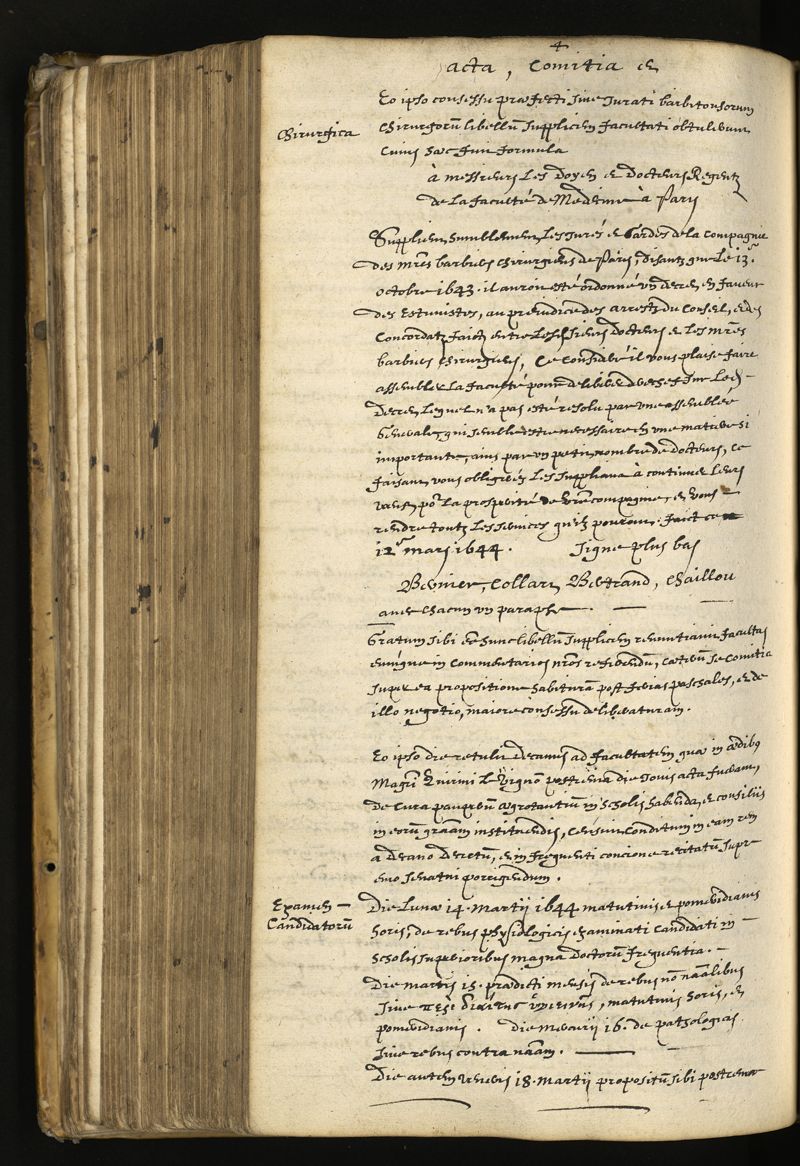 acta, Comitia et
Eo ipso consessu præfecti sive Jurati barbitonsorum
Chirurgica
chirurgorū libellū supplicem facultati obtulerunt
Cuius hæc fuit formula
à messieurs les doyen et docteurs Regentz
de la faculté de Medecine à Paris
Supplient humblement les Jurés et Gardes de la compagnie
des mres barbiers chirurgiens de Paris, disantz que le 13.e
octobre 1643. il auroit esté ordonné un decret, en faveur
des Estuvistes, au prejudice des arrestz du Conseil, et des
Concordatz faictz entre lesd. sieurs docteurs et les mres
barbiers chirurgiens, Ce Consideré il vous plaise faire
assembler la faculté pour deliberer de chef sur led.
Decret, lequel n'a pas esté resolu par une assemblee
Generale, qui semble estre necessaire en une matiere si
importante, ains par un petit nombre de docteurs, Ce
faisant vous obligerés les suppliants à continuer leurs
vœux por la prosperité de vre compagnie, et vous
rendre toutz les services qu'ilz pourront. faict ce
12.e mars 1644. signé plus bas
Collart, Bertrand, Chaillou
avec chacun un paraphe.
Gratum sibi esse hunc libellū supplicem renuntiavit facultas
eumque in commentarios nros referendū, cæterū se comitia
super ea propositione habituram post ferias paschales, et de
illo negotio, maiore consessu deliberaturam.
Eo ipso die retulit decanus ad facultatem quæ in ædibus
Magri Quirini le Vignon postrema die Jovis acta fuerant,
de cura pauperū ægrotantium in scholis habenda, et consiliis
in eorū grãam instituendis, censuit conditum in eam rem
a decano decretū, et in frequenti concione recitatū supre
mo senatui porrigendum.
Examen
Candidatorū
Die Lunæ 14. Martii 1644 matutinis et pomeridianis
horis, de rebus physiologicis examinati Candidati in
scholis superioribus magna doctorū frequentia.
Die martis 15. prædicti mensis de rebus nō nãalibus
sive περὶ διαίτης ὑγιεινῆς, matutinis horis, et
pomeridianis. die mercurii 16. de pathologicis
sive rebus contra nãam.
Die autem veneris 18. Martii propositū sibi postremæ